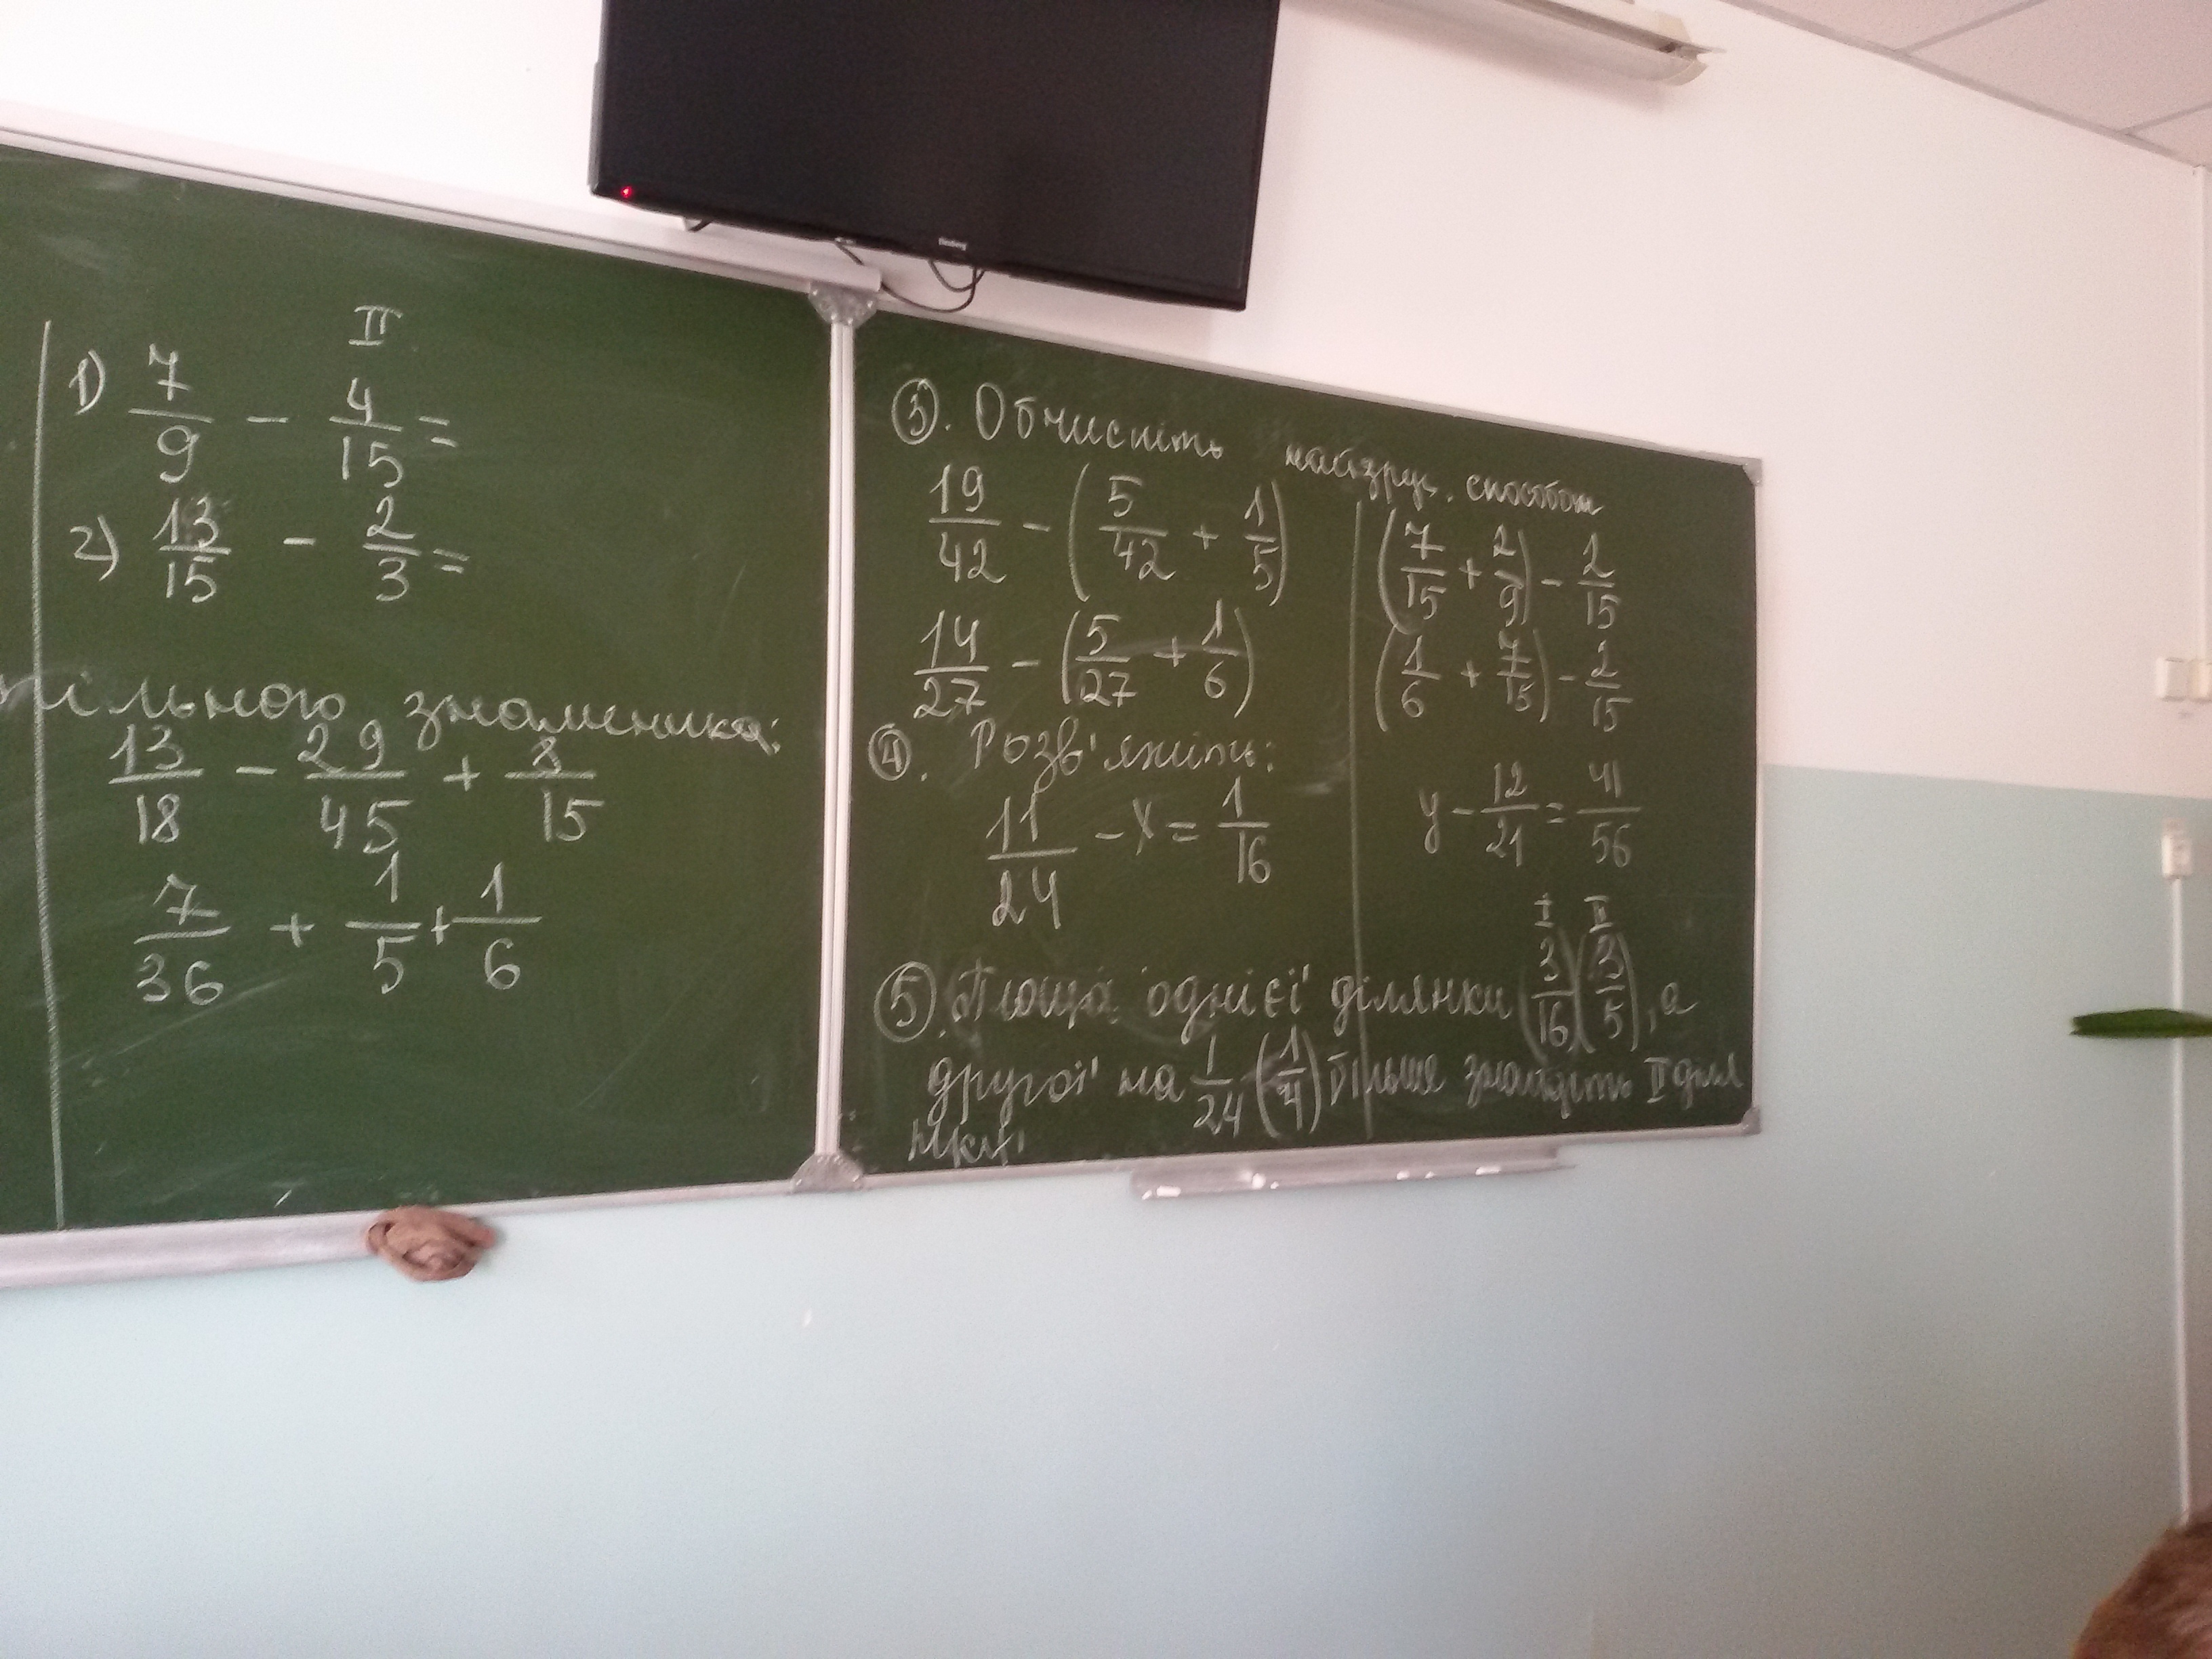 II
1) 7/9 - 4/15 =
2) 13/15 - 2/3 =
пільного знаменника:
13/18 - 29/45 + 8/15
7/36 + 1/5 + 1/6
③. Обчисліть найзруч. способом
19/42 - (5/42 + 1/5)
(7/15 + 2/9) - 2/15
14/27 - (5/27 + 1/6)
(1/6 + 7/15) - 2/15
④. Розв'яжіть:
11/24 - x = 1/16
y - 12/21 = 41/56
I II
⑤. Площа однієї ділянки (3/16) (3/5), а
другої на 1/24 (1/4) більше знайдіть II діля
нки